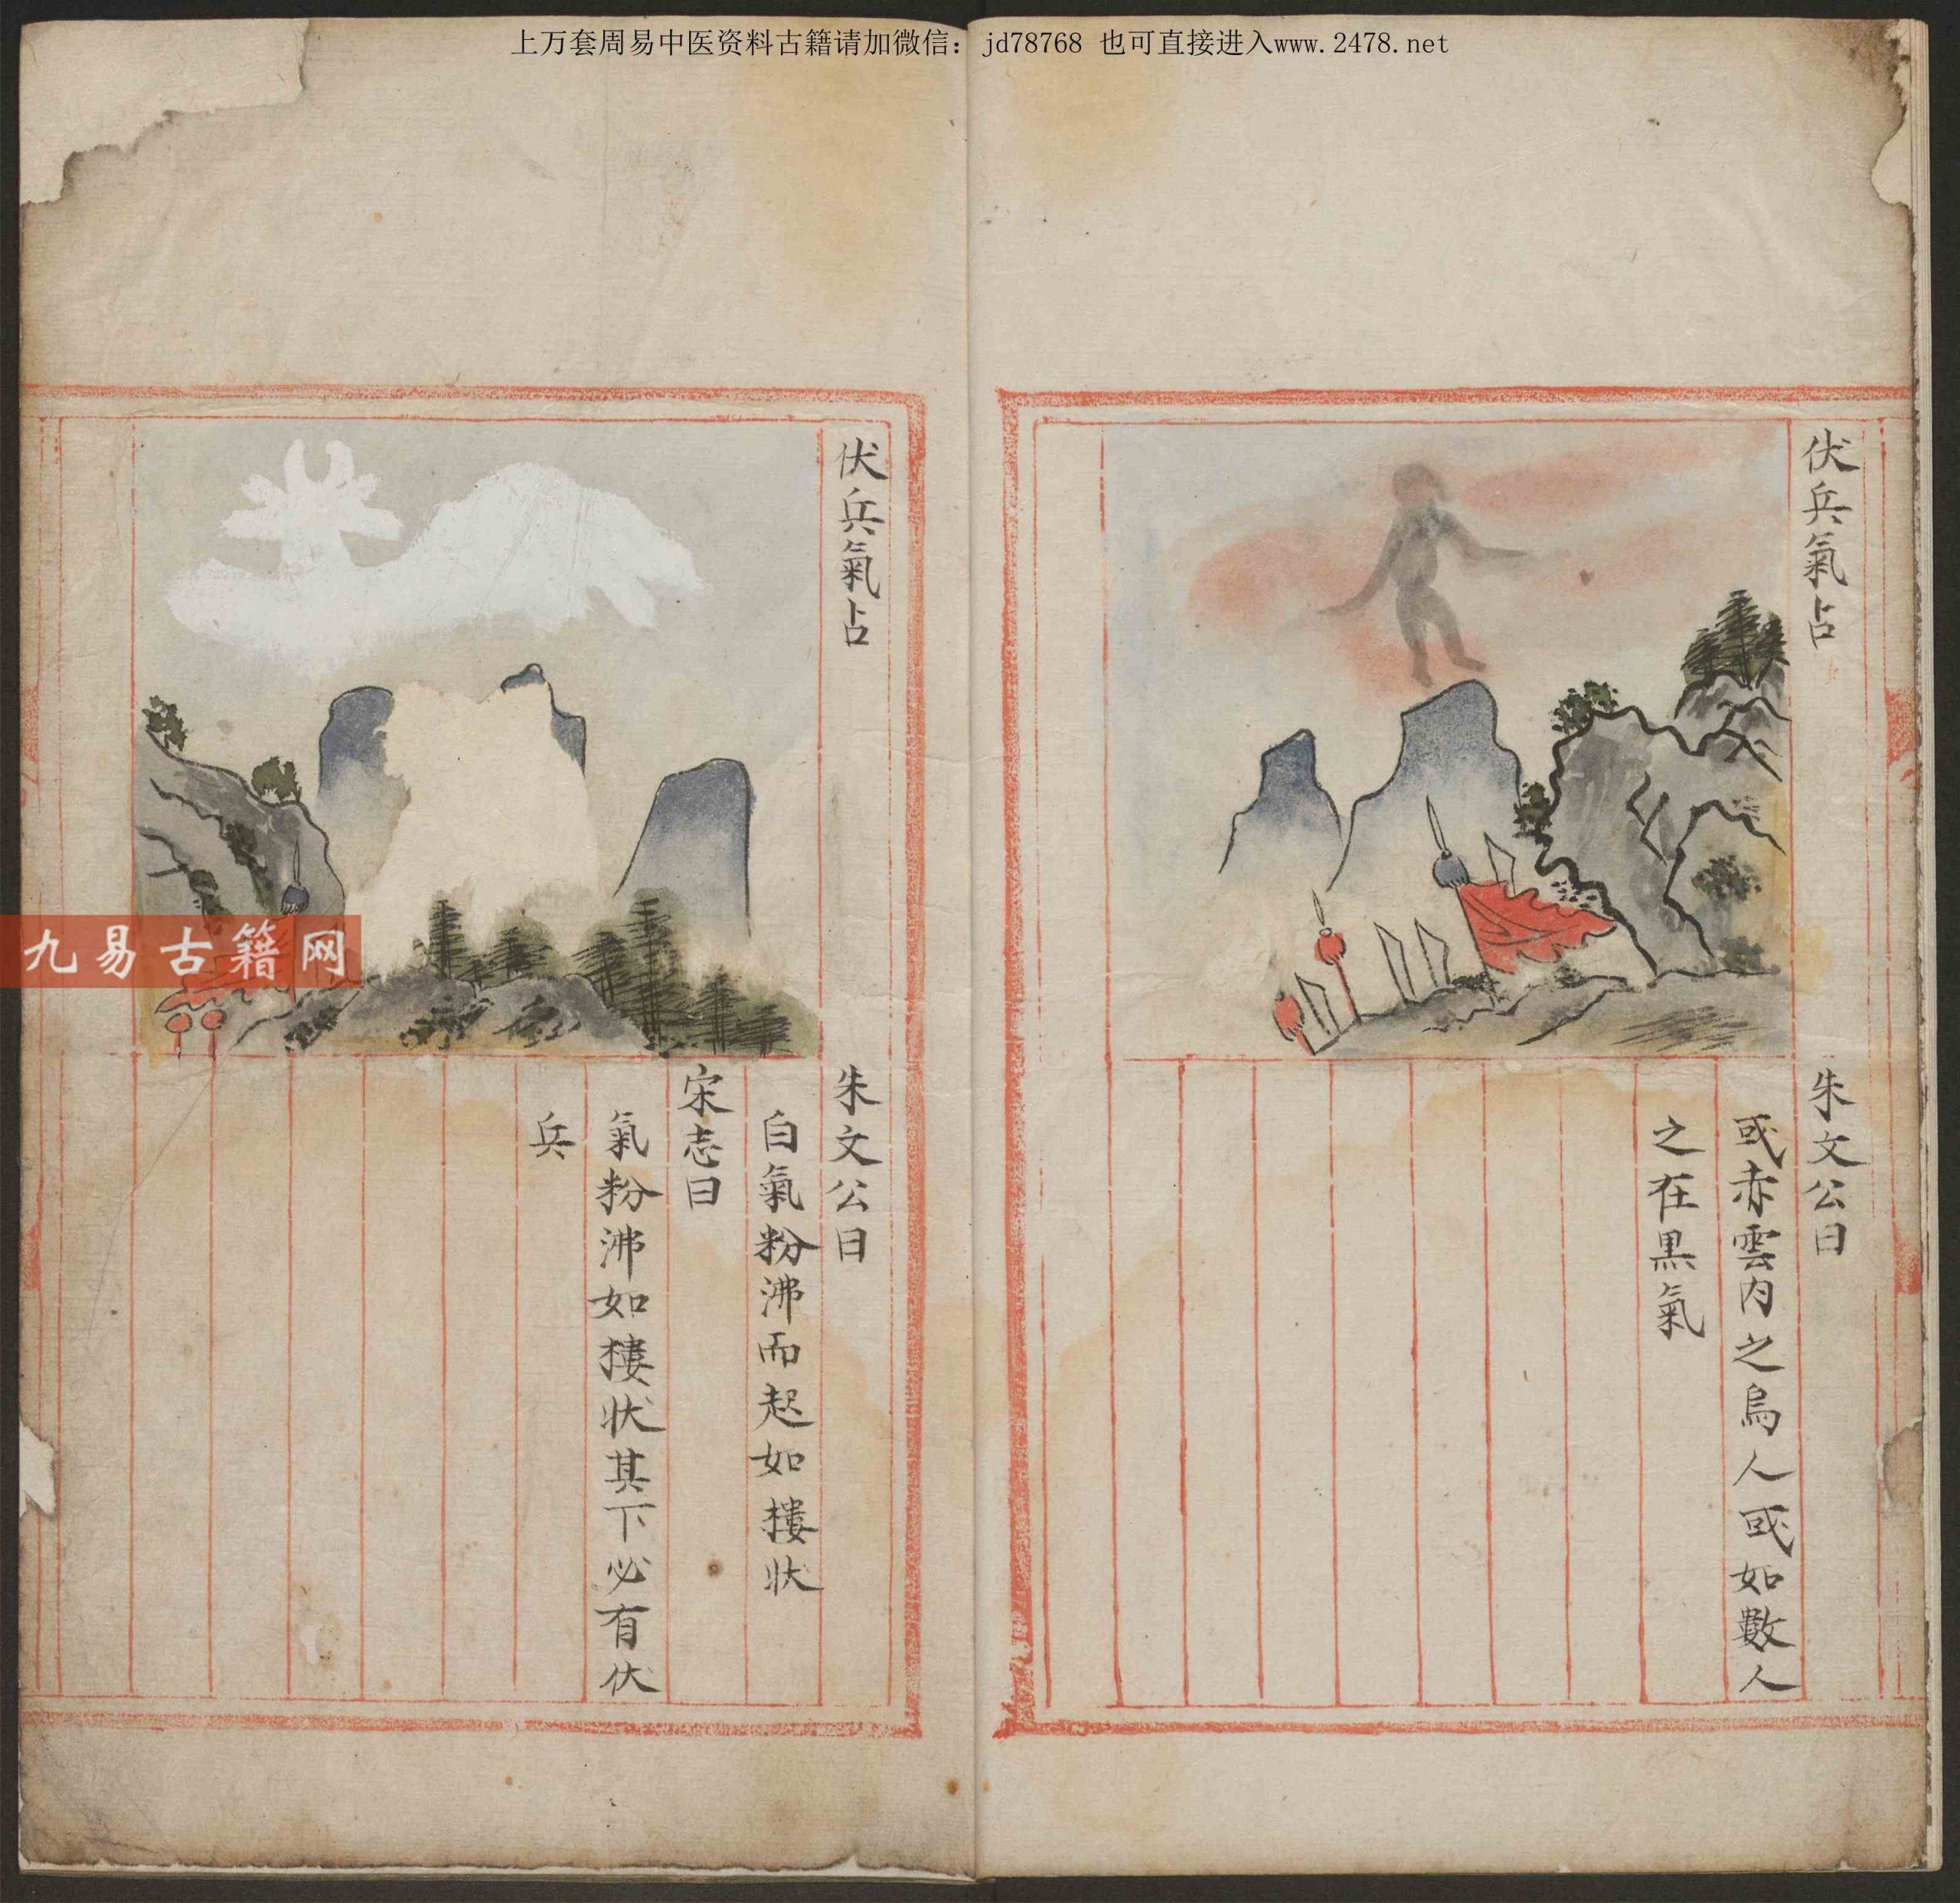 上万套周易中医资料古籍请加微信：jd78768 也可直接进入www.2478.net
伏兵氣占
朱文公曰
或赤雲内之烏人或如數人
之在黒氣
伏兵氣占
朱文公曰
白氣粉沸而起如樓状
宋志曰
氣粉沸如樓状其下必有伏
兵
九易古籍网